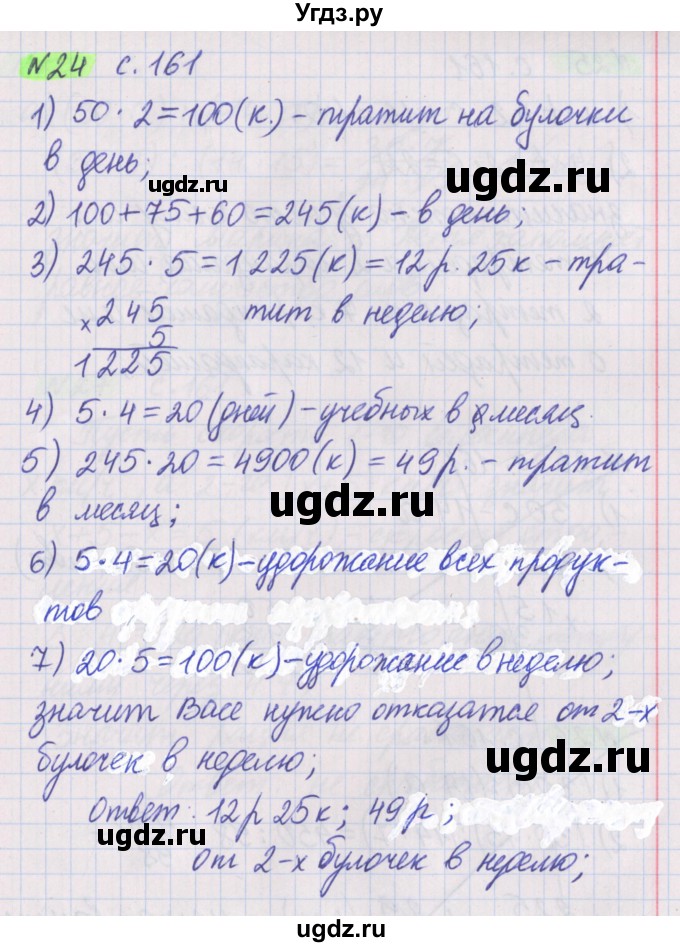 Угдз.ру
№24 с. 161
1) 50 · 2 = 100(к.) – тратит на булочки
в день;
ugdz.ru
ugdz.ru
2) 100 + 75 + 60 = 245(к) – в день;
3) 245 · 5 = 1225(к) = 12р. 25к – тра-
ugdz.ru
× 245 тит в неделю;
5
1225
ugdz.ru
4) 5 · 4 = 20 (дней) – учебных в месяц.
5) 245 · 20 = 4900(к) = 49р. – тратит
в месяц;
ugdz.ru
6) 5 · 4 = 20(к) – удорожание всех продук-
тов
ugdz.ru
7) 20 · 5 = 100(к) – удорожание в неделю;
значит Васе нужно отказатся от 2-х
ugdz.ru
булочек в неделю;
Ответ: 12р 25к; 49р;
ugdz.ru
от 2-х булочек в неделю;
ugdz.ru